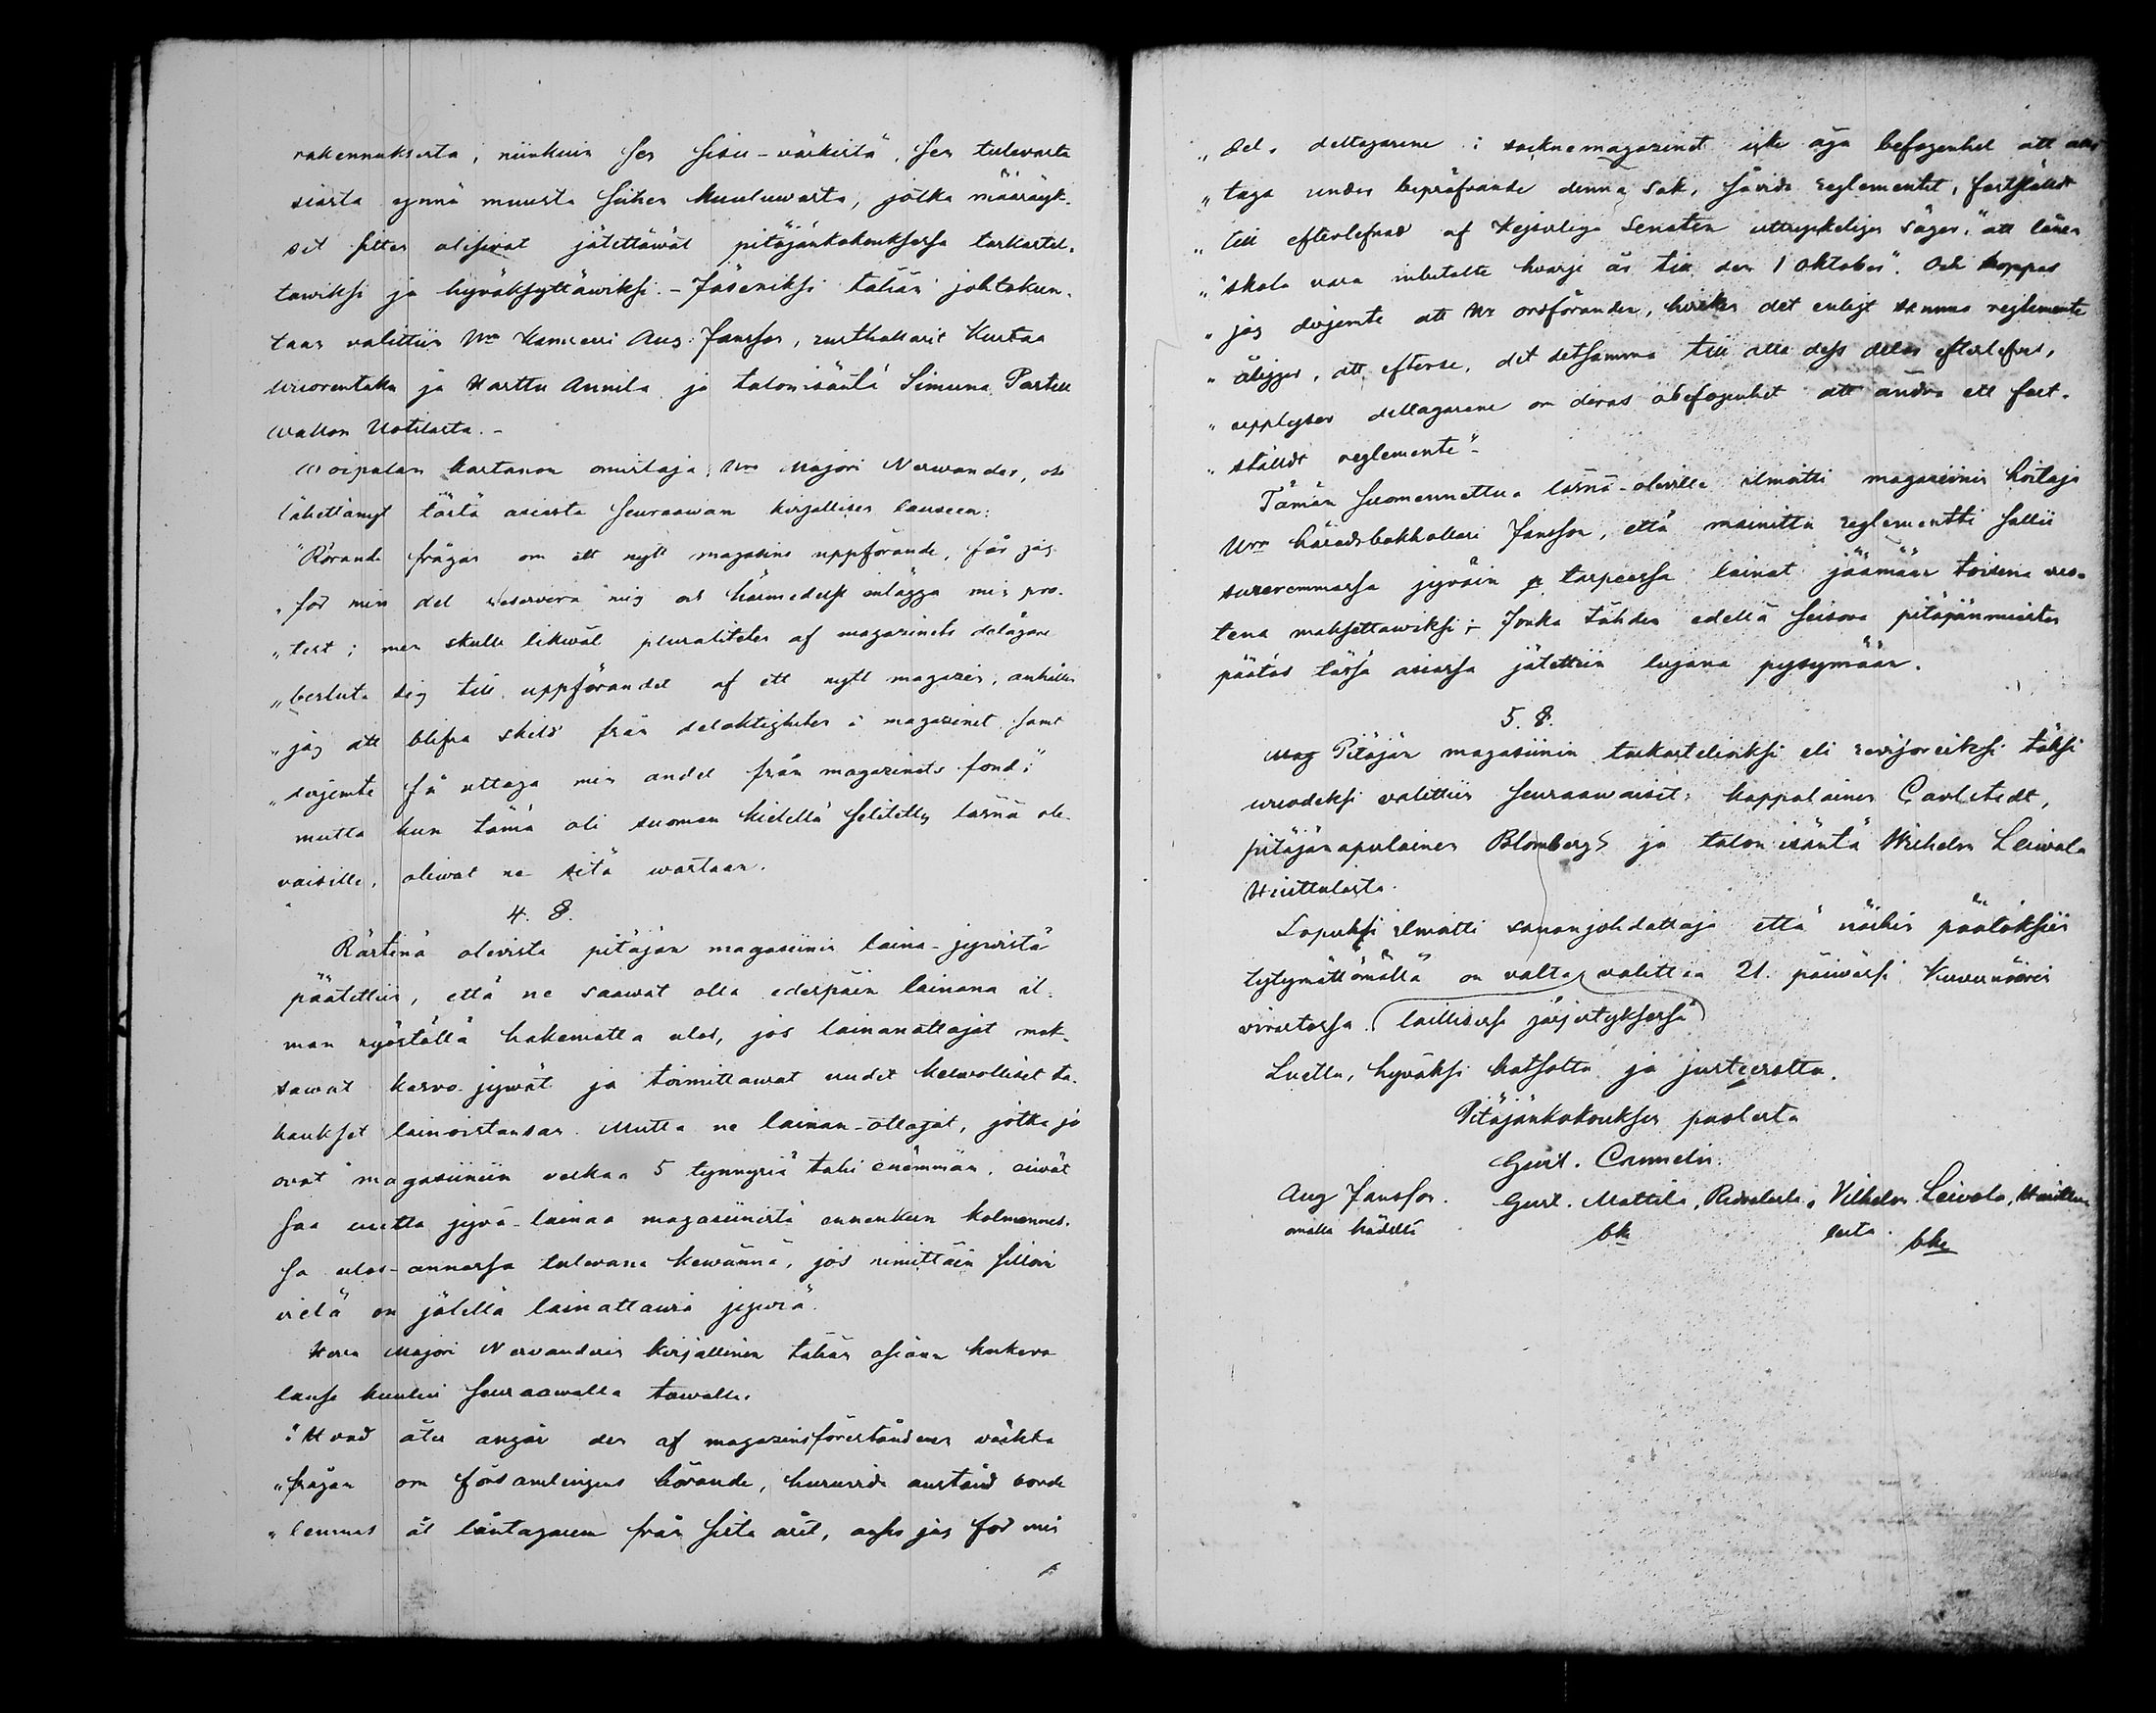 rakennuksesta, niinkuin sen sisu-värkistä, sen tulevasta
siasta ynnä muusta siihen kuuluwasta, jotka määräyk-
set sitten olisivat jätettäwät pitäjänkokouksessa tarkastel-
tawiksi ja hyväksyttäwiksi. - Jäseniksi tähän johtokun-
taan valittiin Hra Kamreri Aug. Jansson, rusthollarit Kustaa
Wuorentaka ja Harttu Annila ja talonisäntä Simuna Partu
wallon Uotilasta. -
Woipalan kartanon omistaja, Hra Majori Nervander, oli
lähettänyt tästä asiasta seuraawan kirjallisen lauseen:
"Rörande frågan om ett nytt magasins uppförande, får jag
"för min del reservera mig och härmedelst inlägga min pro-
"test; men skulle likwäl pluraliteten af magazinets delägare
"besluta sig till uppförandet af ett nytt magazin, anhåller
"jag att blifva skild från delaktigheten i magazinet samt
"derjemte få uttaga min andel från magazinets fond;"
mutta kun tämä oli suomen kielellä selitetty läsnä ole-
vaisille, oliwat ne sitä wastaan.
4. §.
Rästinä olevista pitäjän magasiinin laina-jywistä
päätettiin, että ne saawat olla edespäin lainana il-
man ryöstöllä hakematta ulos, jos lainanottajat mak-
sawat kasvo jywät ja toimittawat uudet kelwolliset ta-
kaukset lainoistansa. Mutta ne lainan-ottajat, jotka jo
ovat magasiiniin velkaa 5 tynnyriä tahi enämmän, eiwät
saa uutta jyvä-lainaa magasiinista ennenkun kolmannes-
sa ulos-annossa tulewana kewännä, jos nimittäin silloin
vielä on jälellä lainattawia jywiä.
Herra Majori Nervanderin kirjallinen tähän asiaan koskeva
lause kuului seuraawalla tawalla:
"Hvad åter angår den af magazinsföreståndaren väckta
"frågan om församlingens hörande, huruvida anstånd borde
"lemnas åt låntagaren från sista året, anser jag för min
"del, deltagarene i socknemagazinet icke äga befogenhet att an-
"taga under bepröfvande denna sak, såvida reglementet, fastställdt
"till efterlefnad af Kejserliga Senaten uttryckeligen säger, "att lånen
"skola vara inbetalte hvarje år till den 1 Oktober". Och hoppas
"jag derjemte att Hr ordföranden, hvilken det enligt samma reglemente
"åligger, att efterse, det detsamma till alla dess delar efterlefves,
"upplyser deltagarene om deras obefogenhet att ändra ett fast-
"ställdt reglemente".
Tämän suomennettua läsnä-oleville ilmoitti magasiinin hoitaja
Hra häradsbokhollari Jansson, että mainittu reglementti sallii
suuremmassa jyväin tarpeessa lainat jäämään toisena vuo-
tena maksettawiksi; - Jonka tähden edellä seisova pitäjänmiesten
päätös tässä asiassa jätettiin lujana pysymään.
5. §.
Pitäjän magasiinin tarkastelioiksi eli revisoreiksi täksi
wuodeksi valittiin seuraawaiset: kappalainen Carlstedt,
pitäjänapulainen Blomberg ja talon isäntä Wilhelm Leiwola
Huittulasta.
Lopuksi ilmoitti sananjohdattaja että näihin päätöksiin
tytymättömällä on valta valittaa 21. päiwässä Kuvernöörin
virastossa (laillisessa järjestyksessä)
Luettu, hyväksi katsottu ja justeerattu.
Pitäjänkokouksen puolesta
Gust. Cannelin.
Aug Jansson. Gust. Mattila, Ridvalasta, Vilhelm Leivola, Huittu-
omalla kädellä bke lasta. bke